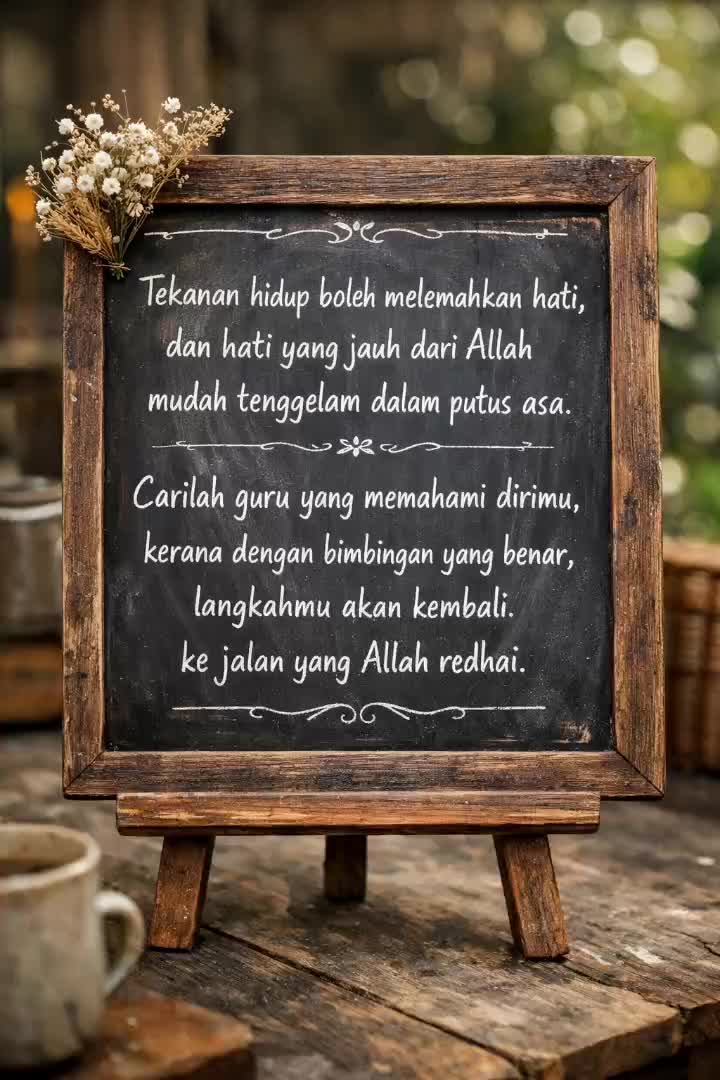 Tekanan hidup boleh melemahkan hati,
dan hati yang jauh dari Allah
mudah tenggelam dalam putus asa.
Carilah guru yang memahami dirimu,
kerana dengan bimbingan yang benar,
langkahmu akan kembali.
ke jalan yang Allah redhai.